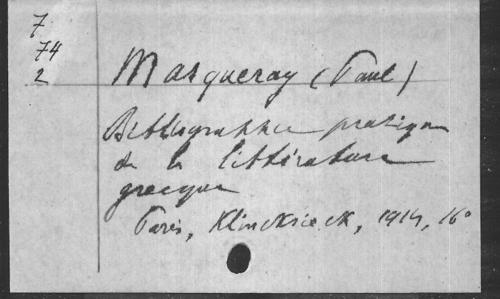 7
74
2
Masqueray (Paul)
Bibliographie pratique
de la littérature
grecque
Paris, Klincksieck, 1914, 16º